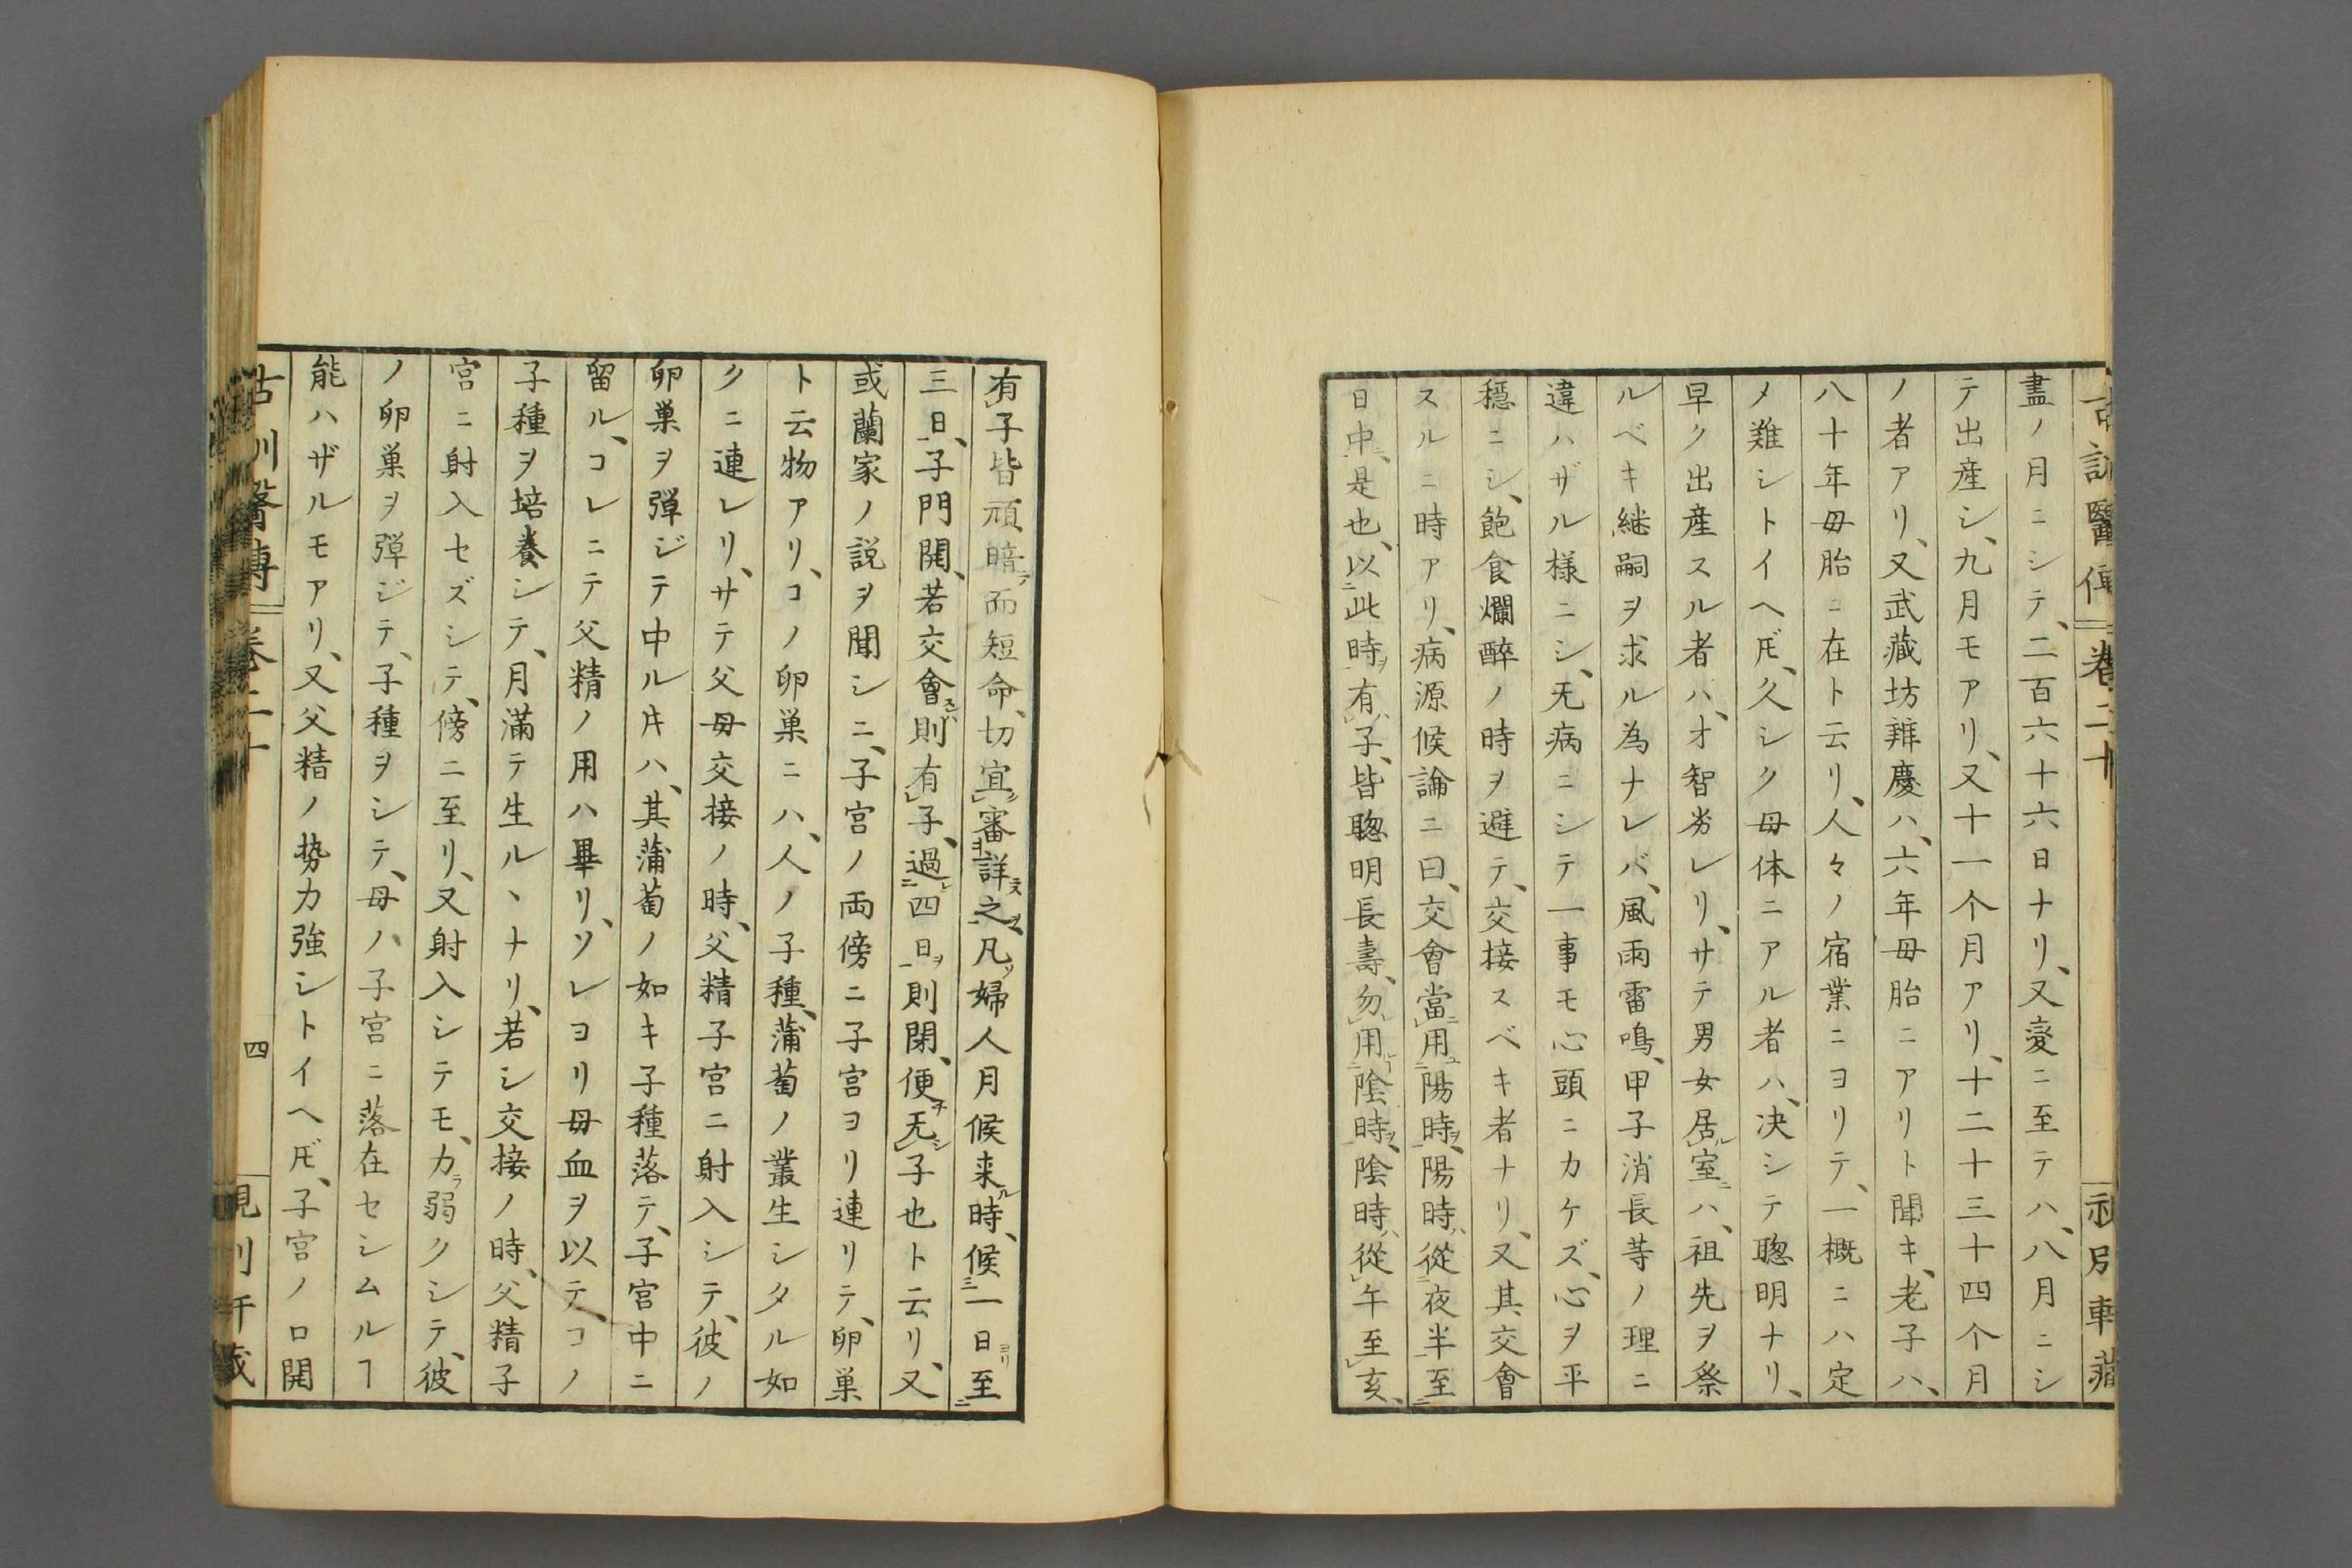 古訓醫傳 卷二十
盡ノ月ニシテ、二百六十六日ナリ、又変ニ至テハ、八月ニシ
テ出産シ、九月モアリ、又十一个月アリ、十二十三十四个月
ノ者アリ、又武藏坊辨慶ハ、六年母胎ニアリト聞キ、老子ハ、
八十年母胎ニ在ト云リ、人々ノ宿業ニヨリテ、一概ニハ定
メ難シトイヘ𪜈、久シク母体ニアル者ハ、决シテ聰明ナリ、
早ク出産スル者ハ、才智劣レリ、サテ男女居室ハ、祖先ヲ祭
ルベキ継嗣ヲ求ル為ナレバ、風雨雷鳴、甲子消長䓁ノ理ニ
違ハザル様ニシ、无病ニシテ一事モ心頭ニカケズ、心ヲ平
穏ニシ、飽食爛醉ノ時ヲ避テ、交接スベキ者ナリ、又其交會
スルニ時アリ、病源候論ニ曰、交會當用陽時、陽時從夜半至
日中、是也、以此時有子、皆聰明長壽、勿用陰時、陰時從午至亥、
有子皆頑暗而短命、切宜審詳之、凡婦人月候来時、候一日至
三日、子門開、若交會則有子、過四日則閉、便无子也ト云リ、又
或蘭家ノ説ヲ聞シニ、子宮ノ両傍ニ子宮ヨリ連リテ、卵巣
ト云物アリ、コノ卵巣ニハ、人ノ子種、蒲萄ノ叢生シタル如
クニ連レリ、サテ父母交接ノ時、父精子宮ニ射入シテ、彼ノ
卵巣ヲ弾ジテ中ル𪜈ハ、其蒲萄ノ如キ子種落テ、子宮中ニ
留ル、コレニテ父精ノ用ハ畢リ、ソレヨリ母血ヲ以テ、コノ
子種ヲ培養シテ、月滿テ生ルヽナリ、若シ交接ノ時、父精子
宮ニ射入セズシテ、傍ニ至リ、又射入シテモ、力弱クシテ、彼
ノ卵巣ヲ弾ジテ、子種ヲシテ、母ノ子宮ニ落在セシムルヿ
能ハザルモアリ、又父精ノ勢力強シトイヘ𪜈、子宮ノ口開
古訓醫傳 卷二十 四